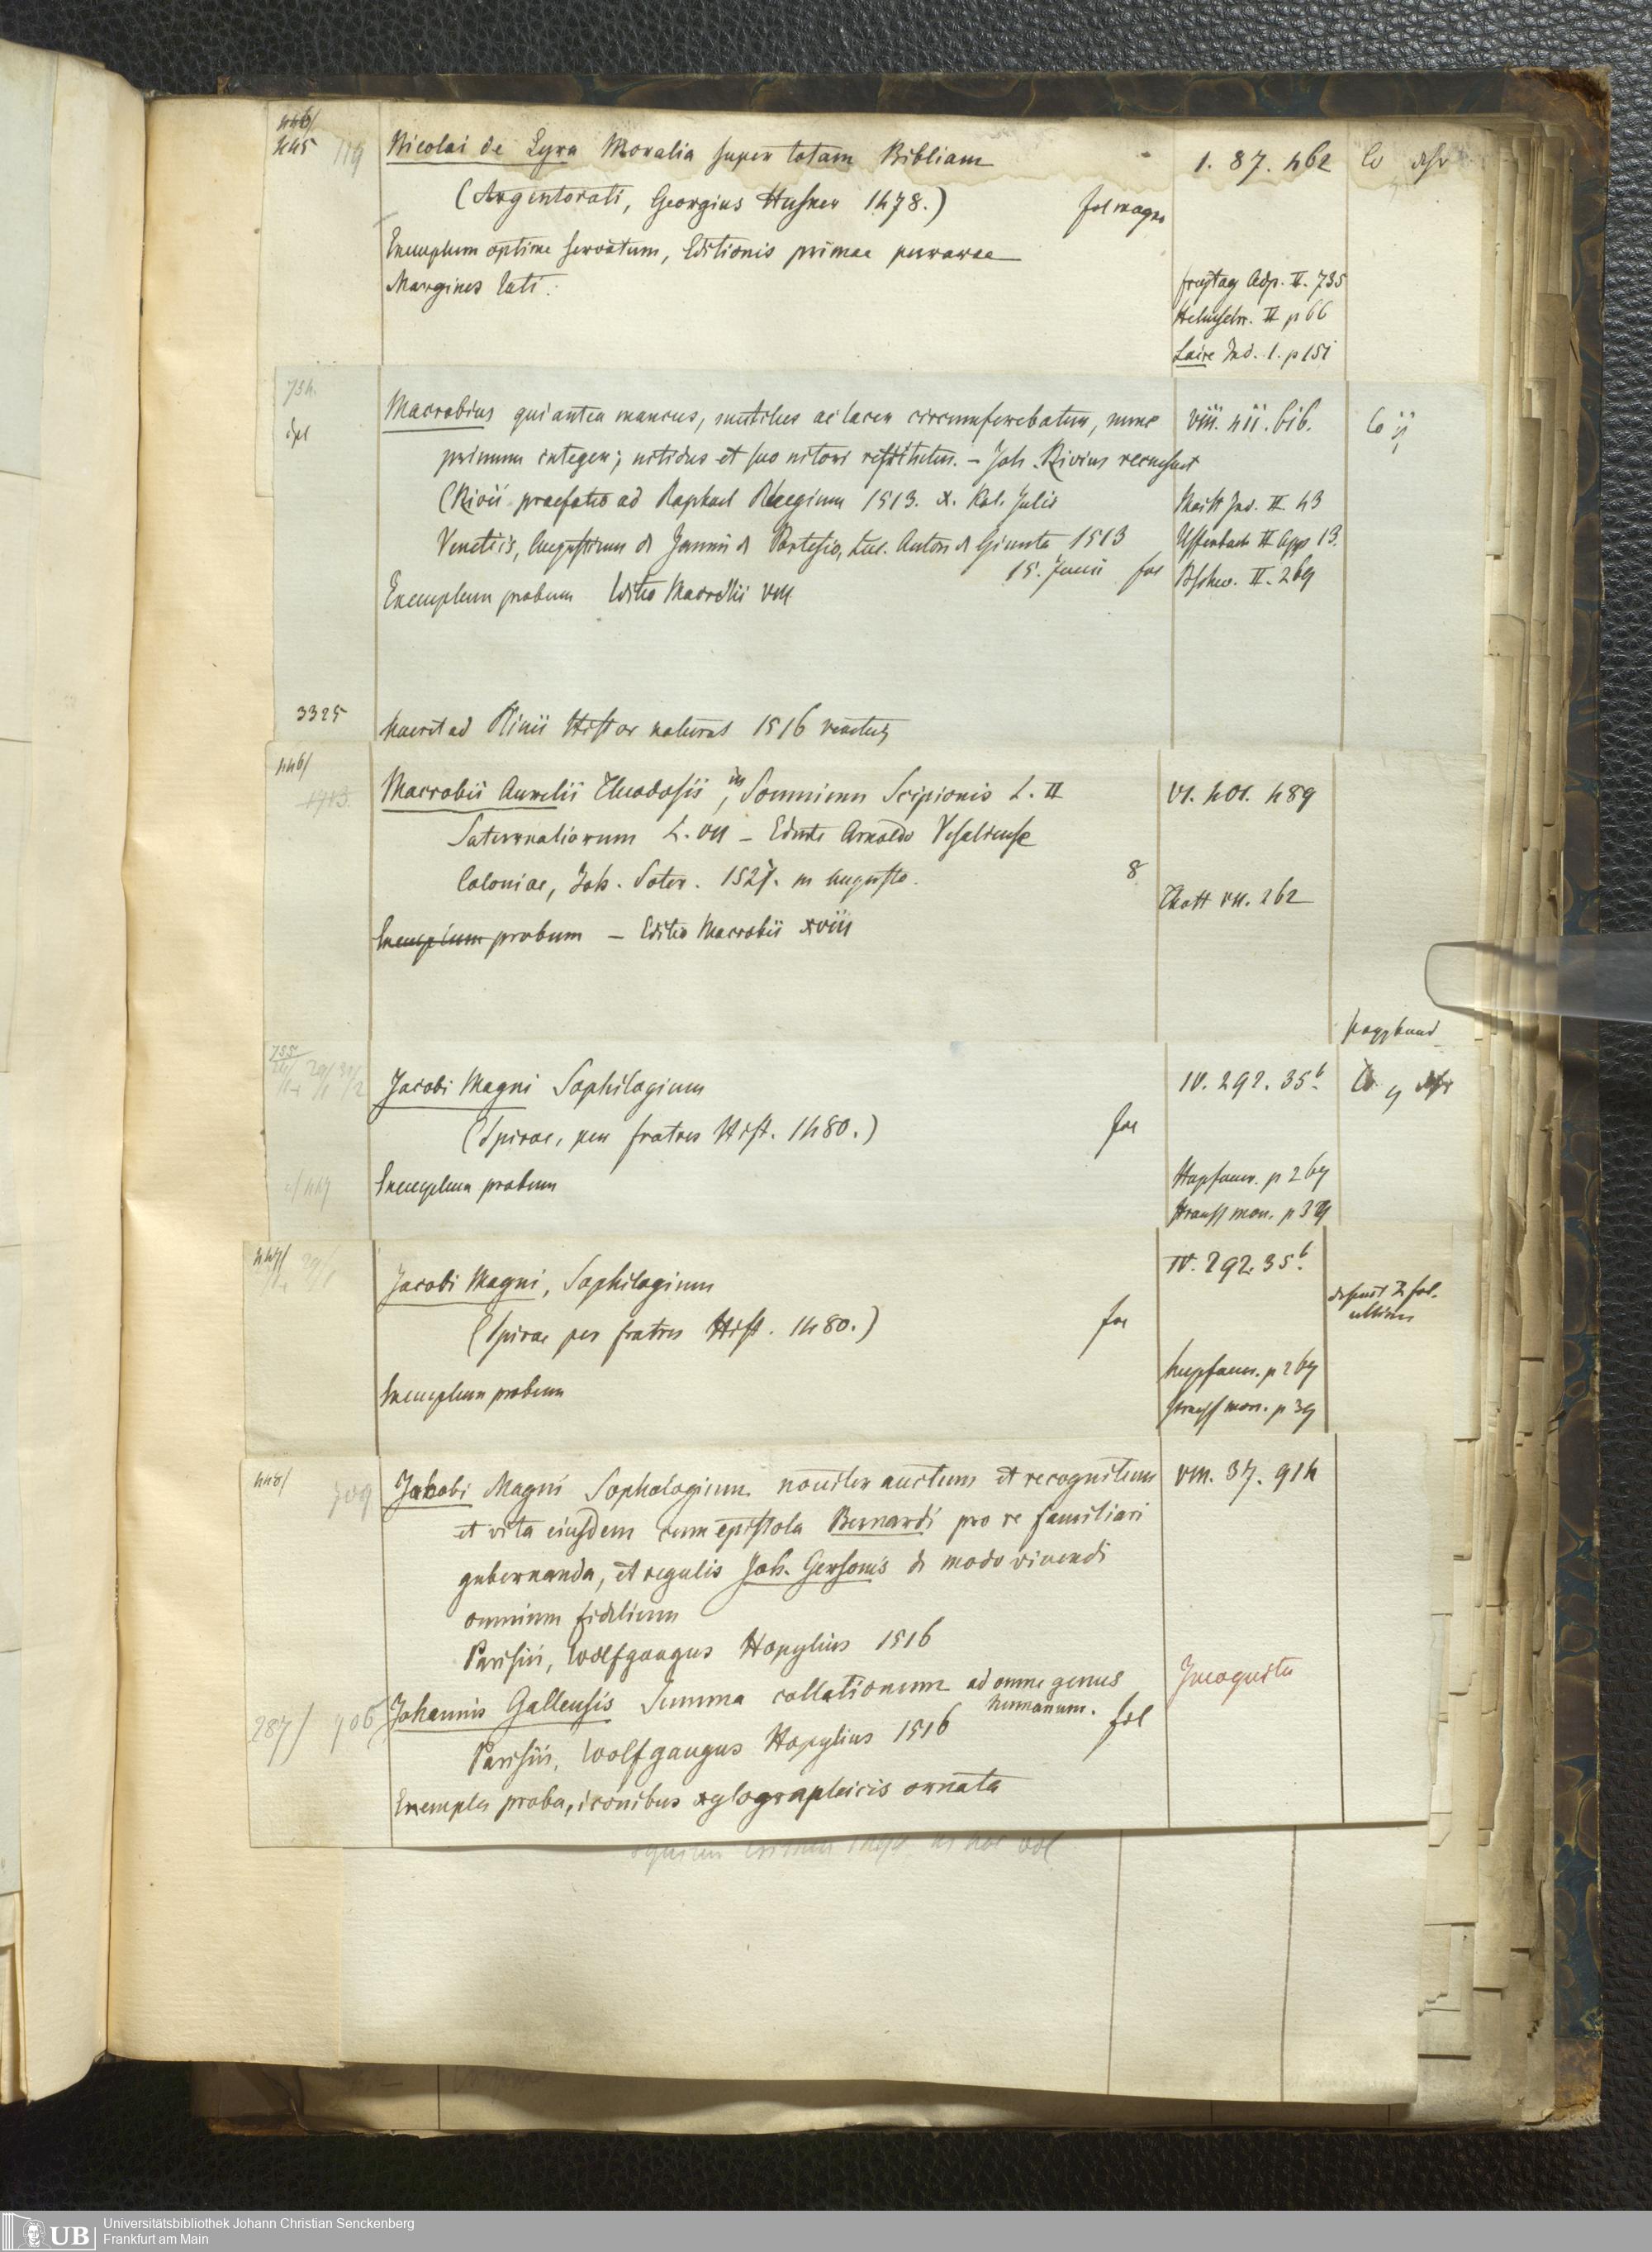 446/
445 119
Nicolai de Lyra Moralia super totam Bibliam 1. 87. 462
(Argentorati, Georgius Husner 1478.) fol magno
Exemplum optime servatum, Editionis primae perrarae
Margines lati. Freytag Adp. II. 735
Helmschr. II p 66
Laire Ind. 1. p 151
754.
Macrobius qui antea mancus, mutilus ac lacer circumferebatur, nunc VIII. 411. 616.
primum integer; nitidus et suo nitori restitutus. - Joh. Rivius recensuit
(Rivii praefatio ad Raphael Regium 1513. X. Kal. Julii Maitt Ind. II. 43
Venetiis, Augustinus de Zannis de Portesio, Luc. Anton de Giunta 1513 Uffenbach II App 13.
15. Junii fol II. 269
Exemplum probum Editio Macrobii VIII
3325 haeret ad Plinii Histor natural 1516
446/
1713.
Macrobii Aurelii Theodosii, in Somnium Scipionis L. II VI. 401. 489
Saturnaliorum L. VII - Edente Arnoldo Vesaliense
Coloniae, Joh. Soter. 1527. m Augusto. 8
Thott VII. 262
Exemplum probum - Editio Macrobii XVIII
Pappband
755
Jacobi Magni Sophilogium IV. 292. 35b.
(Spirae, per fratres Hist. 1480.) fol
Exemplum probum Hupfauer. p 269
Strauss mon. p 39
447/
Jacobi Magni, Sophilogium IV. 292. 35b.
desunt 2 fol. ultima
(Spirae per fratres Hist. 1480.) fol
Hupfauer. p 269
Exemplum probum Strauss mon. p 39
448/ 709
Jakobi Magni Sophologium noviter auctum et recognitum VIII. 37. 914
et vita eiusdem cum epistola Bernardi pro re familiari
gubernanda, et regulis Joh. Gersonis de modo vivendi
omnium fidelium
Parisiis, Wolfgangus Hopylius 1516
Incognita
287/ 706
Johannis Gallensis Summa collationum ad omne genus
humanum.
Parisiis, Wolfgangus Hopylius 1516 fol
Exempla proba, iconibus xylographicis ornata
UB Universitätsbibliothek Johann Christian Senckenberg
Frankfurt am Main